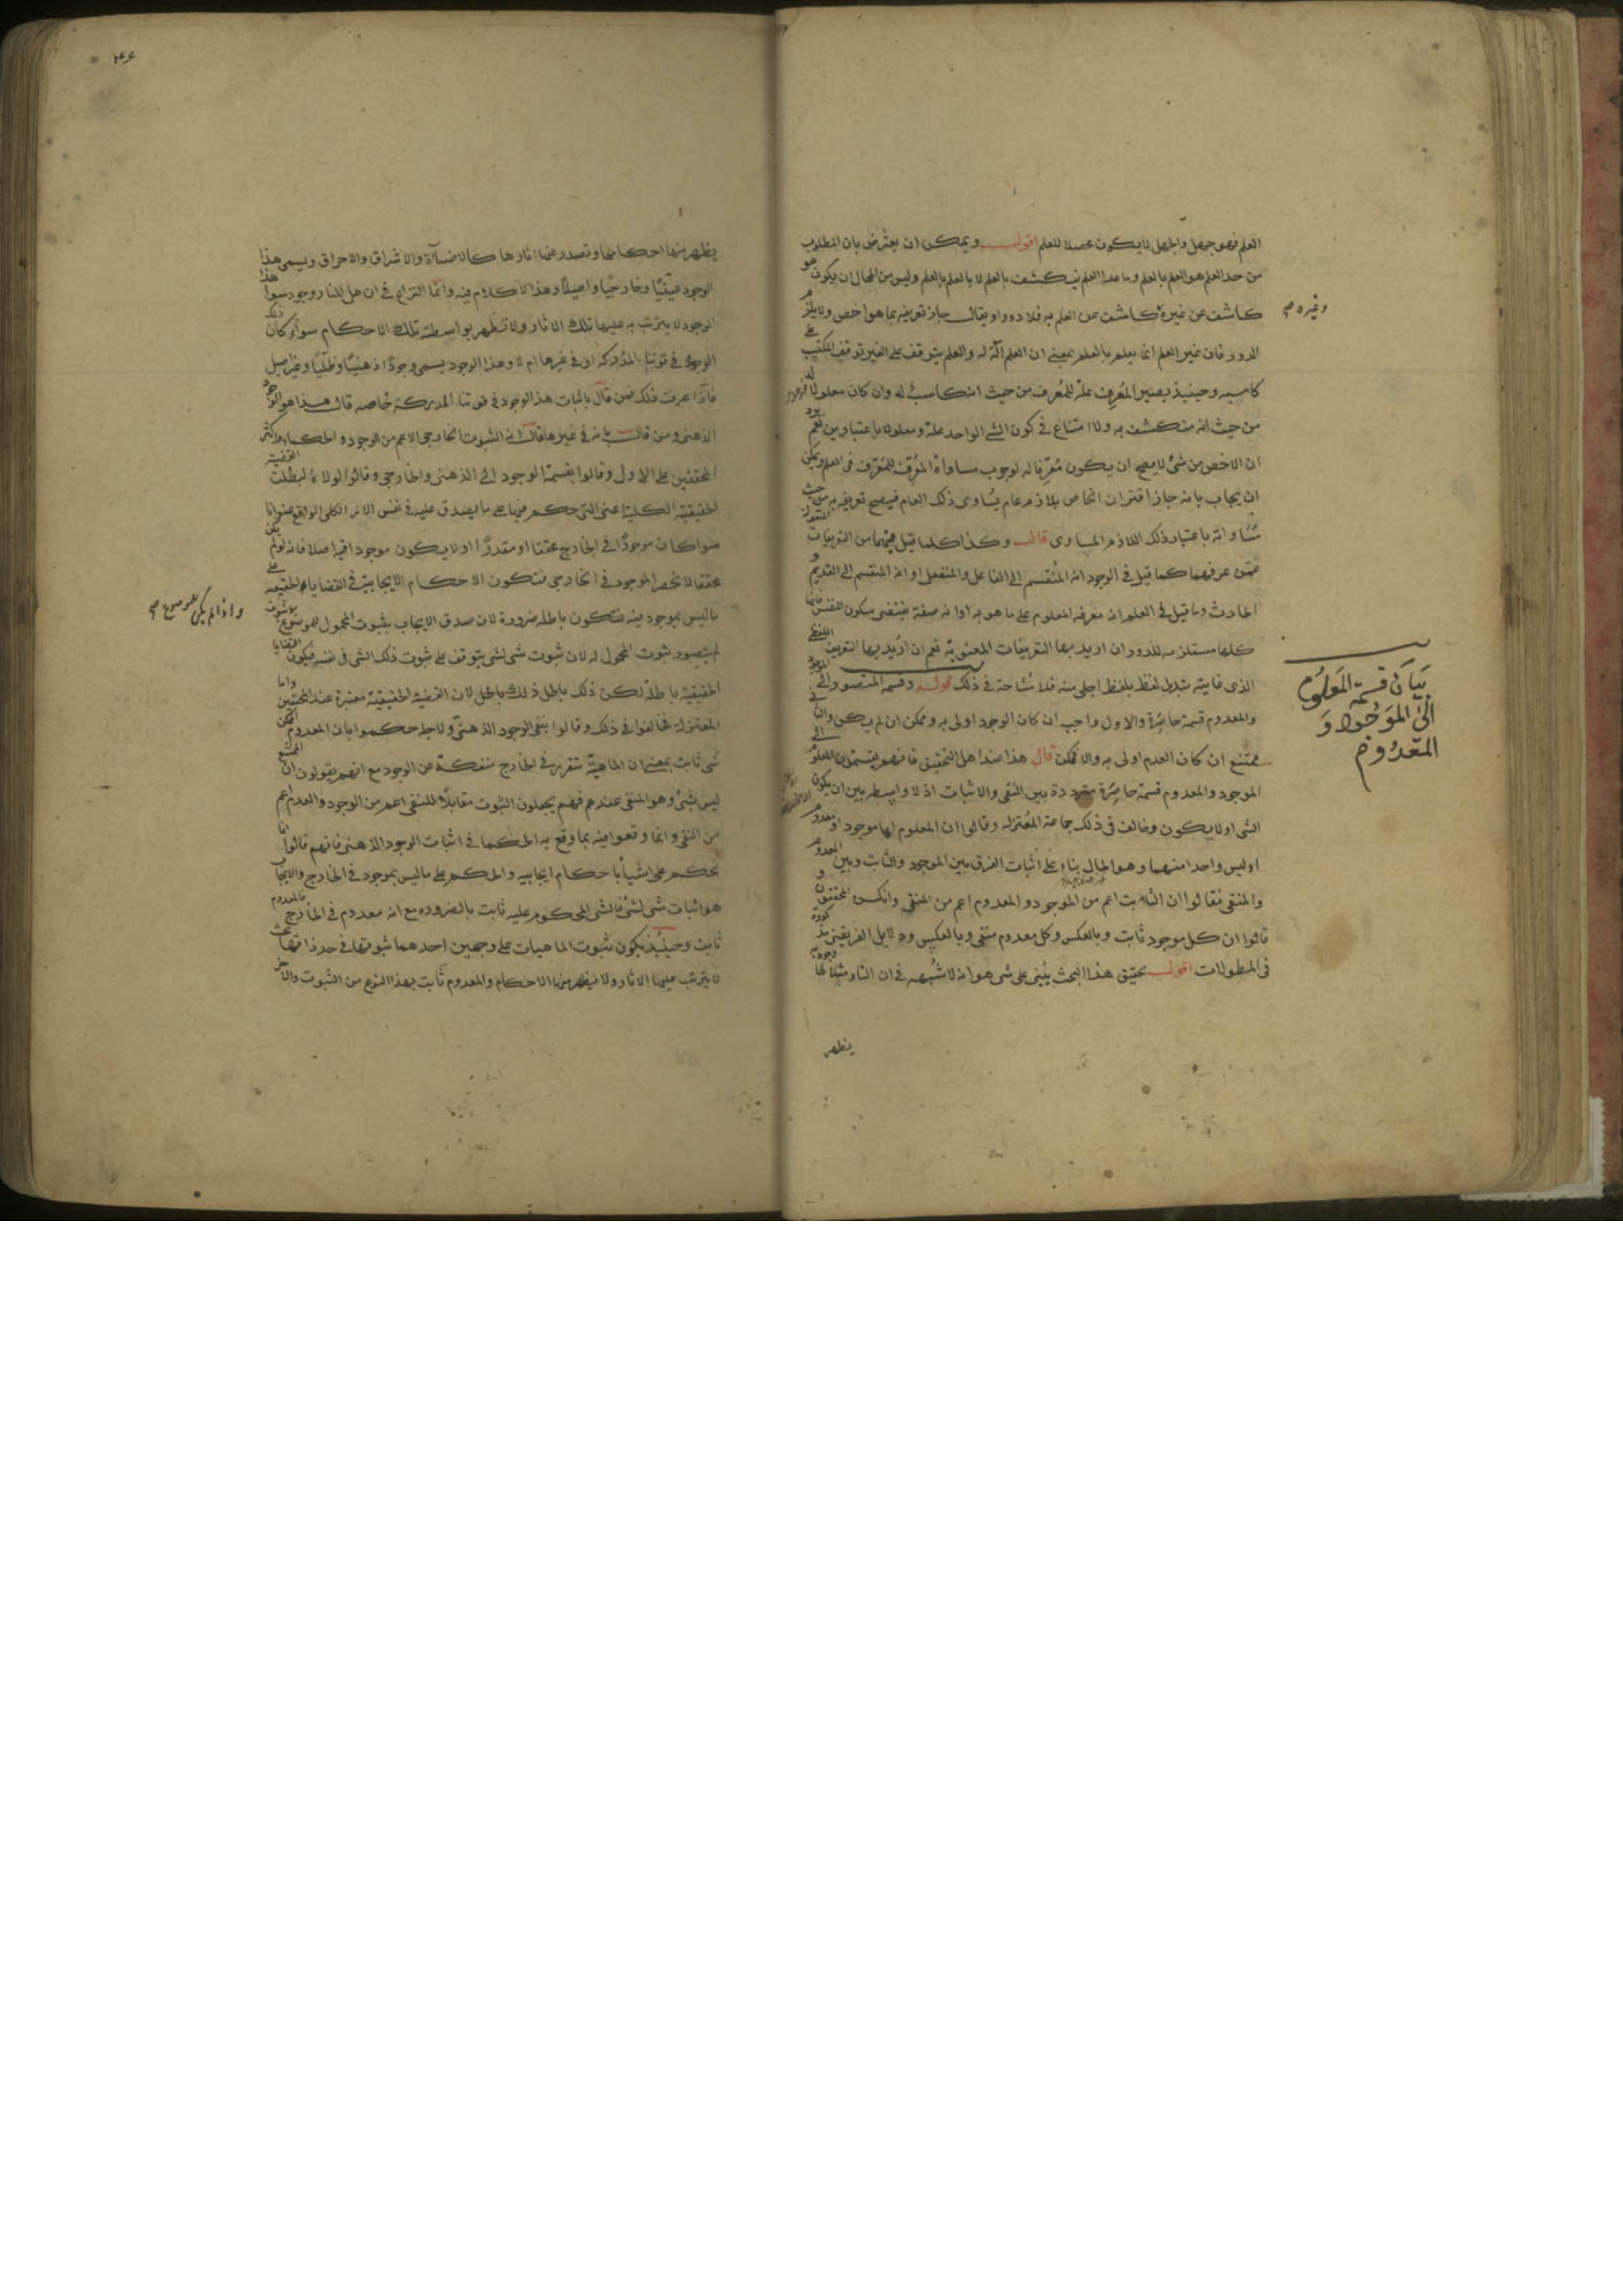 العلم فهو جهل والجهل لا يكون محصلا للعلم اقول ويمكن ان يعترض بان المطلوب
من حد العلم هو العلم بالعلم وما عدا العلم ينكشف بالعلم لا بالعلم بالعلم وليس من المحال ان يكون هو
كاشفا عن غيره كاشف عن العلم به فلا دور او يقال جاز تعريفه بما هو اخص ولا يلزم
وغيره صح
الدور فان غير العلم انما يعلم بالعلم بمعنى ان العلم آلة له والعلم يتوقف على الغير توقف المكتسب على
كاسبه وحينيذ يصير المعرف علة للمعرف من حيث انه كاسب له وان كان معلولا له
من حيث انه منكشف به ولا امتناع في كون الشي الواحد علة ومعلولا باعتبارين نعم يرد
ان الاخص من شئ لا يصح ان يكون معرفا له لوجوب مساواة المعرف للمعرف في العلم ويمكن
ان يجاب بانه جاز اقتران الخاص بلازم عام يساوى ذلك العام فيصح تعريفه به من حيث
مساواته باعتبار ذلك اللازم المساوى قال وكذا كلما قيل فيهما من التعريفات المنقولة
عمن عرفهما كما قيل في الوجود انه المنقسم الى الفاعل والمنفعل او انه المنقسم الى القديم و
الحادث وما قيل في العلم انه معرفه المعلوم على ما هو به او انه صفة تقتضى سكون النفس فانها
كلها مستلزمه للدور ان اريد بها التعريفات المعنوية نعم ان اريد بها التعريف اللفظى
الذى غايته تبديل لفظ بلفظ اجلى منه فلا مشاحة في ذلك قوله وقسمة المتصور الى الموجود
بيان قسمة المعلوم
الى الموجود و
المعدوم
والمعدوم قسمة حاصرة والاول واجب ان كان الوجود اولى به وممكن ان لم يكن والثانى
ممتنع ان كان العدم اولى به والا فممكن قال هذا عند اهل التحقيق فانهم يقسمون المعلوم الى
الموجود والمعدوم قسمة حاصرة مترددة بين النفى والاثبات اذ لا واسطه بين ان يكون
الشى او لا يكون وخالف في ذلك جماعة المعتزله وقالوا ان المعلوم اما موجود او معدوم
او ليس واحدا منهما وهو الحال بناء على اثبات الفرق بين الموجود والثابت وبين المعدوم
والمنفى فقالوا ان الثابت اعم من الموجود و المعدوم اعم من المنفى وانكره المحققون و
قالوا ان كل موجود ثابت وبالعكس وكل معدوم منفى وبالعكس ودلايل الفريقين مذكورة
في المطولات اقول تحقيق هذا البحث يبنى على شى هو انه لا شبهه في ان النار مثلا لها وجود به
يظهر
يظهر منها احكامها وتصدر عنها آثارها كالاضاءة والاشراق والاحراق ويسمى هذا
الوجود عينيا وخارجيا واصيلا وهذا لا كلام فيه وانما النزاع في ان هل للنار وجود سوى هذا
الوجود لا يترتب به عليها تلك الاثار ولا تظهر بواسطته تلك الاحكام سواء كان ذلك
الوجود في قوتنا المدركة او في غيرها ام لا وهذا الوجود يسمى وجودا ذهنيا وظليا وغير اصيل
فاذا عرفت ذلك فمن قال باثبات هذا الوجود في قوتنا المدركة خاصه قال هذا هو الوجود
الذهنى ومن قال بانه في غيرها قال انه الثبوت الخارجى الاعم من الوجود و الحكماء واكثر
المحققين على الاول وقالوا بقسمة الوجود الى الذهنى والخارجى وقالوا لولاه لبطلت القضية
الحقيقية الكلية اعنى التى حكم فيها على ما يصدق عليه في نفس الامر الكلى الواقع عنوانا
سوا كان موجودا في الخارج محققا او مقدرا او لا يكون موجودا فيه اصلا فانه لو لم يكن
محققا لانحصر الموجود في الخارجى فتكون الاحكام الايجابية في القضايا الحقيقيه على
ما ليس بموجود فيه فتكون باطله ضرورة لان صدق الايجاب بثبوت المحمول للموضوع
واذا لم يكن للموضوع صح
لم يتصور ثبوت المحمول له لان ثبوت شى لشى يتوقف على ثبوت ذلك الشى في نفسه فيكون القضايا
الحقيقية باطلة لكن ذلك باطل لان القضية الحقيقية معتبرة عند المحققين واما
المعتزلة فخالفوا في ذلك وقالوا بنفى الوجود الذهنى ولاجله حكموا بان المعدوم الممكن
شى ثابت بمعنى ان الماهية تتقرر في الخارج منفكة عن الوجود مع انهم يقولون ان الممتنع
ليس بشئ وهو المنفى عندهم فهم يجعلون الثبوت مقابلا للنفى اعم من الوجود والعدم اعم
من النفى وانما وقعوا فيه بما وقع به الحكما في اثبات الوجود الذهنى فانهم قالوا انا
نحكم على اشياء باحكام ايجابيه والحكم على ما ليس بموجود في الخارج والايجاب
هو اثبات شى لشئ فالشى المحكوم عليه ثابت بالضروره مع انه معدوم في الخارج فالمعدوم
ثابت وحينئذ يكون ثبوت الماهيات على وجهين احدهما ثبوتها في حد ذاتها بحيث
لا يترتب عليها الاثار ولا يظهر منها الاحكام والمعدوم ثابت بهذا النوع من الثبوت والآخر